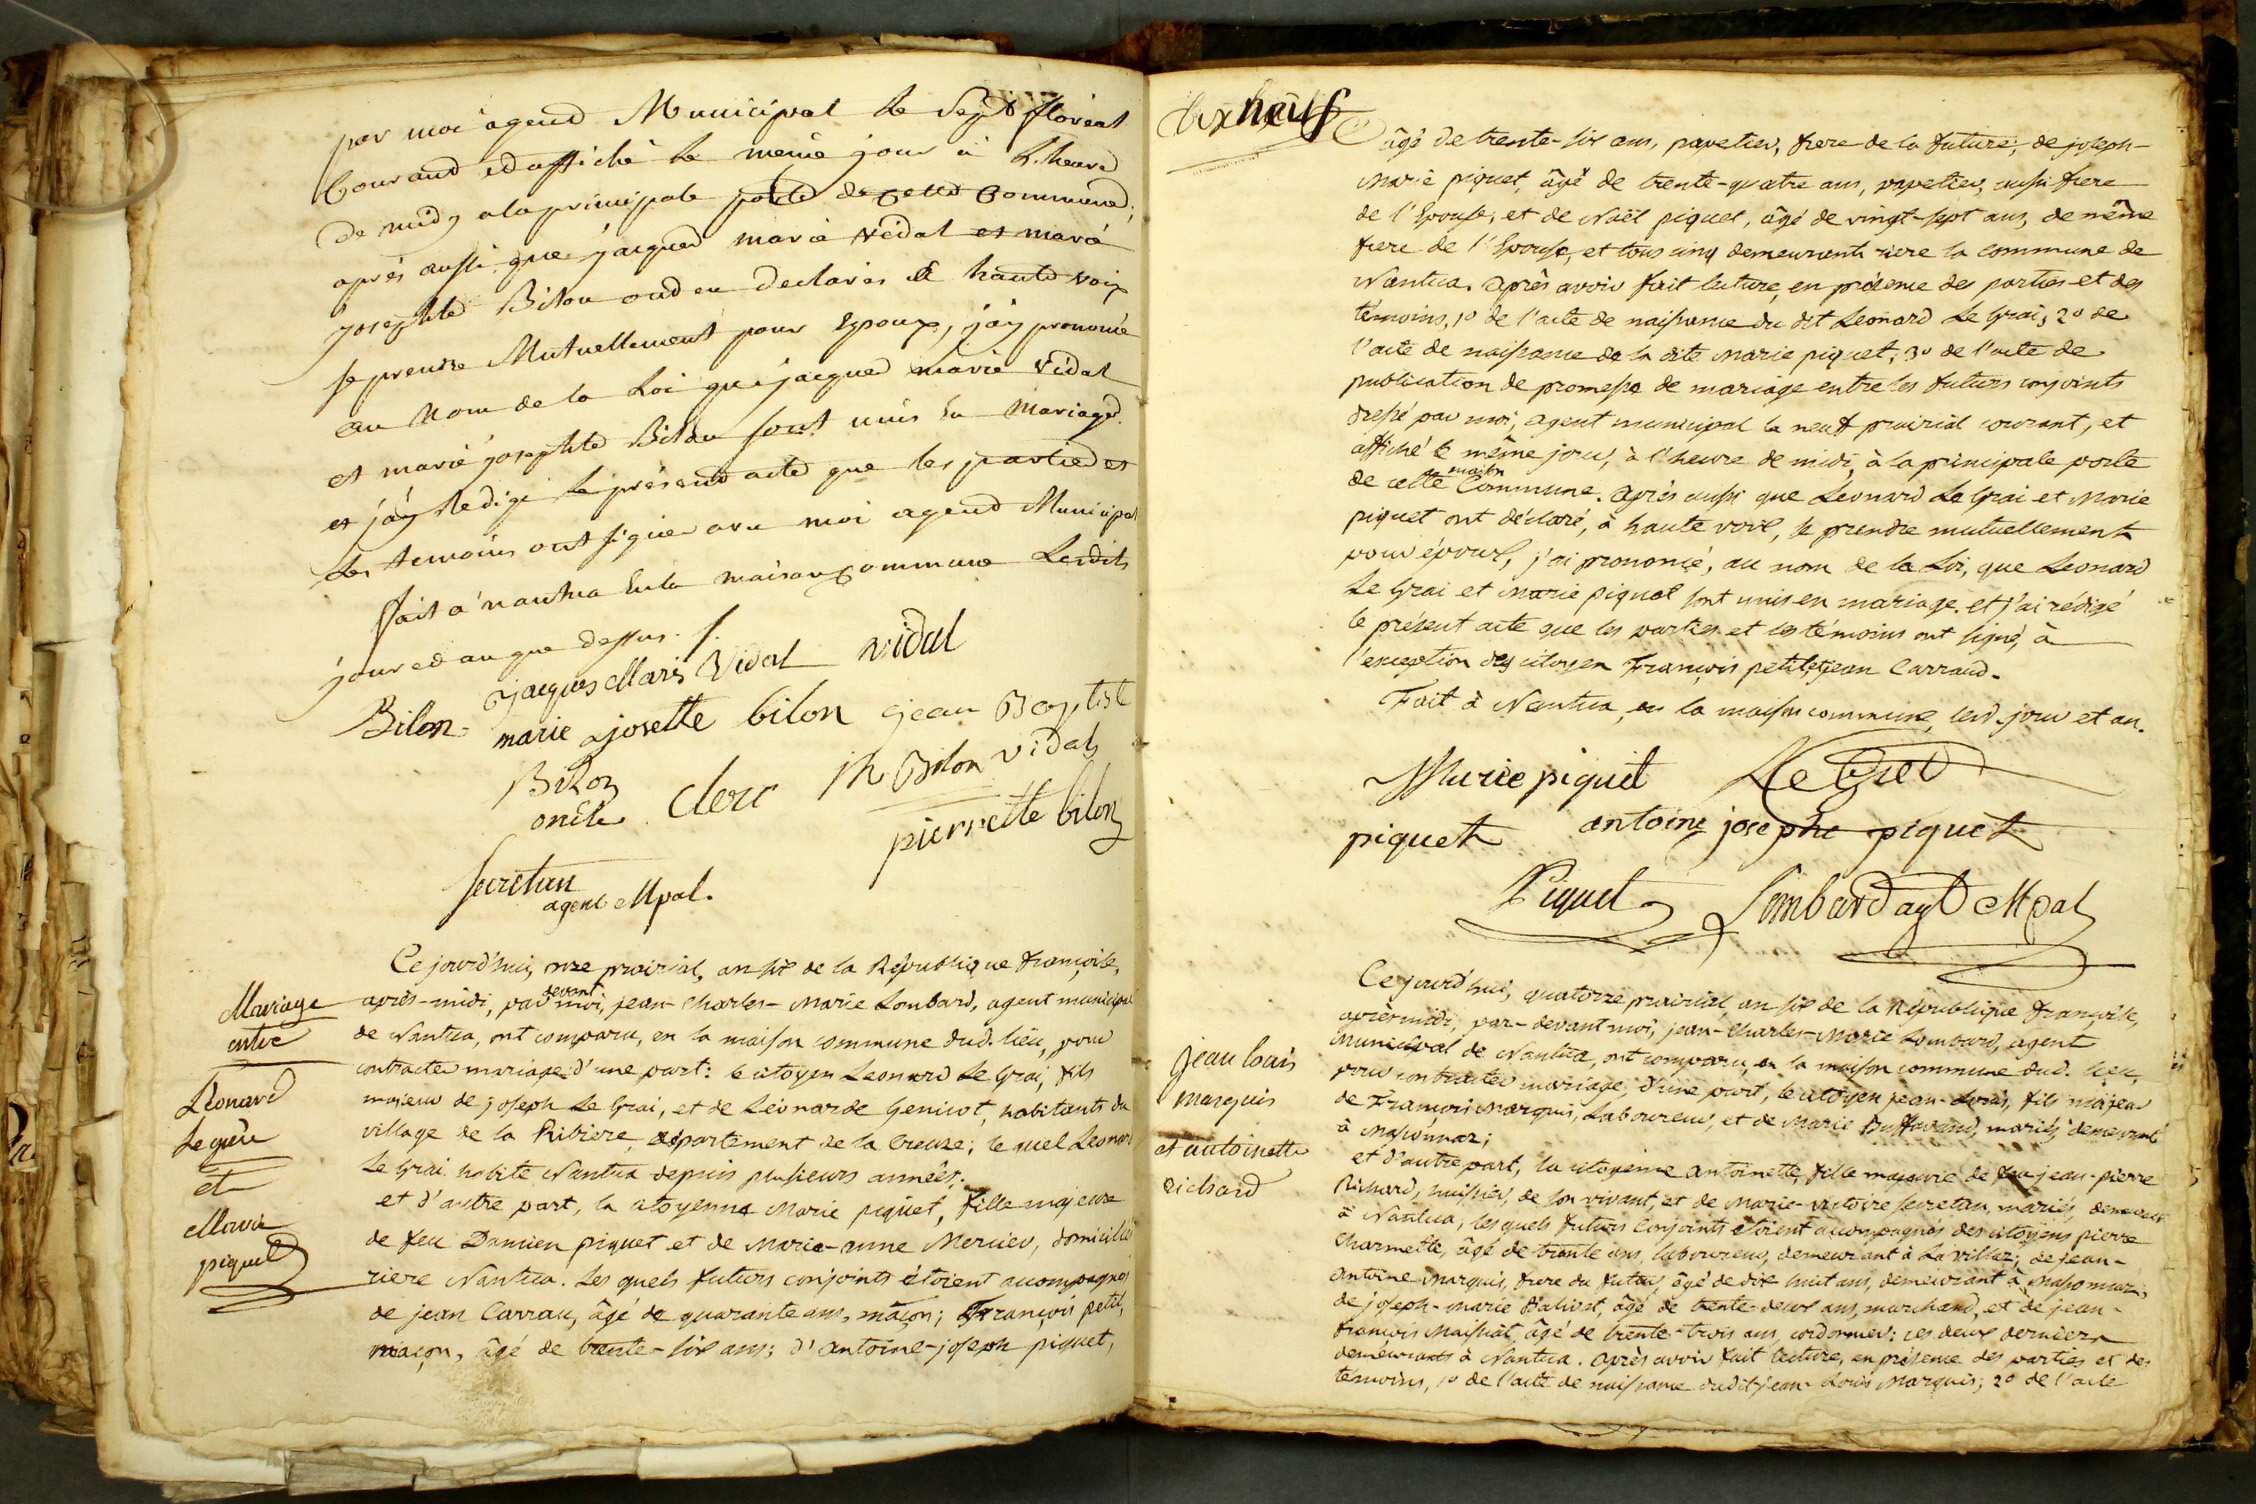 par moi agend Municipal le Sept floréal
Courand et affiché le meme jour à L'heure
De midy a la principale porte de cette Commune,
aprés aussi que jacques marie vidal et marie
josephte Bilon ond en declares à haute voix
se prendre Mutuellement pour Epoux, j'ay prononcé
au Nom de la Loi que jacques marie vidal
et marie josephte Bilon sont unis En Mariage
et j'ay Redigé le présend acte que les parties et
les temoins ont signer avec moi agend Municipal
fait à nantua En la maison commune Lesdits
jour et an que dessus ./.
jacques Marie Vidal vidal
Bilon marie josette bilon jean Baptiste
Bilon Clerc jh Bilon vidal
oncle pierrette bilon
Secretan
agent Mpal.
Mariage
entre
Léonard
Le grée
et
Marie
piquet
Ce jourd'hui, onze prairial, an six de la République françoise,
après-midi, par devant moi, jean-Charles-Marie Lombard, agent municipal
de Nantua, ont comparu, en la maison commune dud. lieu, pour
contracter mariage d'une part: le citoyen Leonard Le Grai, fils
majeur de joseph Le Grai, et de Léonarde Genicot, habitants du
village de la Ribiere, département de la Creuze; le quel Leonard
Le Grai habite Nantua depuis plusieurs années;
et d'autre part, la citoyenne Marie piquet, fille majeure
de feu Damien piquet et de Marie-anne Mercier, domiciliés
riere Nantua. Les quels futurs conjoints étoient acompagnés
de jean Carrau, âgé de quarante ans, maçon; François petit,
maçon, âgé de trente-six ans; d'antoine-joseph piquet,
dix neuf
âgé de trente-six ans, papetier, frere de la future; de joseph-
Marie piquet, âgé de trente-quatre ans, papetier, aussi frere
de l'Epouse, et de Noël piquet, âgé de vingt-sept ans, de même
frere de l'Epouse, et tous cinq demeurants riere la commune de
Nantua. Après avoir fait lecture, en présence des parties et des
témoins, 1º de l'acte de naissance du dit Leonard Le Grai, 2º de
l'acte de naissance de la dite Marie piquet; 3º de l'acte de
publication de promesse de mariage entre les futurs conjoints
dressé par moi, agent municipal le neuf prairial courant, et
affiché le même jour, à l'heure de midi, à la principale porte
de cette maison Commune. Après aussi que Léonard Le Grai et Marie
piquet ont déclaré, à haute voix, se prendre mutuellement
pour époux, j'ai prononcé, au nom de la Loi, que Leonard
Le Grai et Marie piquet sont unis en mariage. et j'ai rédigé
le présent acte que les parties et les témoins ont signé, à
l'exception des citoyen François petit, et jean Carraud.
Fait à Nantua, en la maison commune, lesd. jour et an.
Marie piquet Le Gre
piquet antoine josephe piquet
Piquet Lombard agt Mpal
jean louis
marquis
et antoinette
richard
Ce jourd'hui, quatorze prairial, an six de la République françoise,
après midi, par-devant moi, jean-Charles-Marie Lombard, agent
Municipal de Nantua, ont comparu, en la maison commune dud. lieu,
pour contracter mariage, d'une part, le citoyen jean-Louis, fils majeur
de François Marquis, Laboureur, et de Marie Buffavand, mariés, demeurant
à Massonnaz;
et d'autre part, la citoyenne Antoinette, fille majeure de feu jean-pierre
Richard, huissier, de son vivant, et de Marie-victoire Secretan, mariés, demeurant
à Nantua, lesquels futurs Conjoints étoient acompagnés des citoyens pierre
Charmette, âgé de trente ans, laboureur, demeurant à La villaz; de jean-
Antoine Marquis, frere du futur, âgé de dix huit ans, demeurant à Massonnaz;
de joseph-Marie Balivet, âgé de trente-deux ans, marchand, et de jean-
françois Maissiat, âgé de trente-trois ans, cordonnier; ces deux derniers
demeurants à Nantua. Après avoir fait lecture, en présence des parties et des
témoins, 1º de l'acte de naissance dudit jean-Louis Marquis; 2º de l'acte